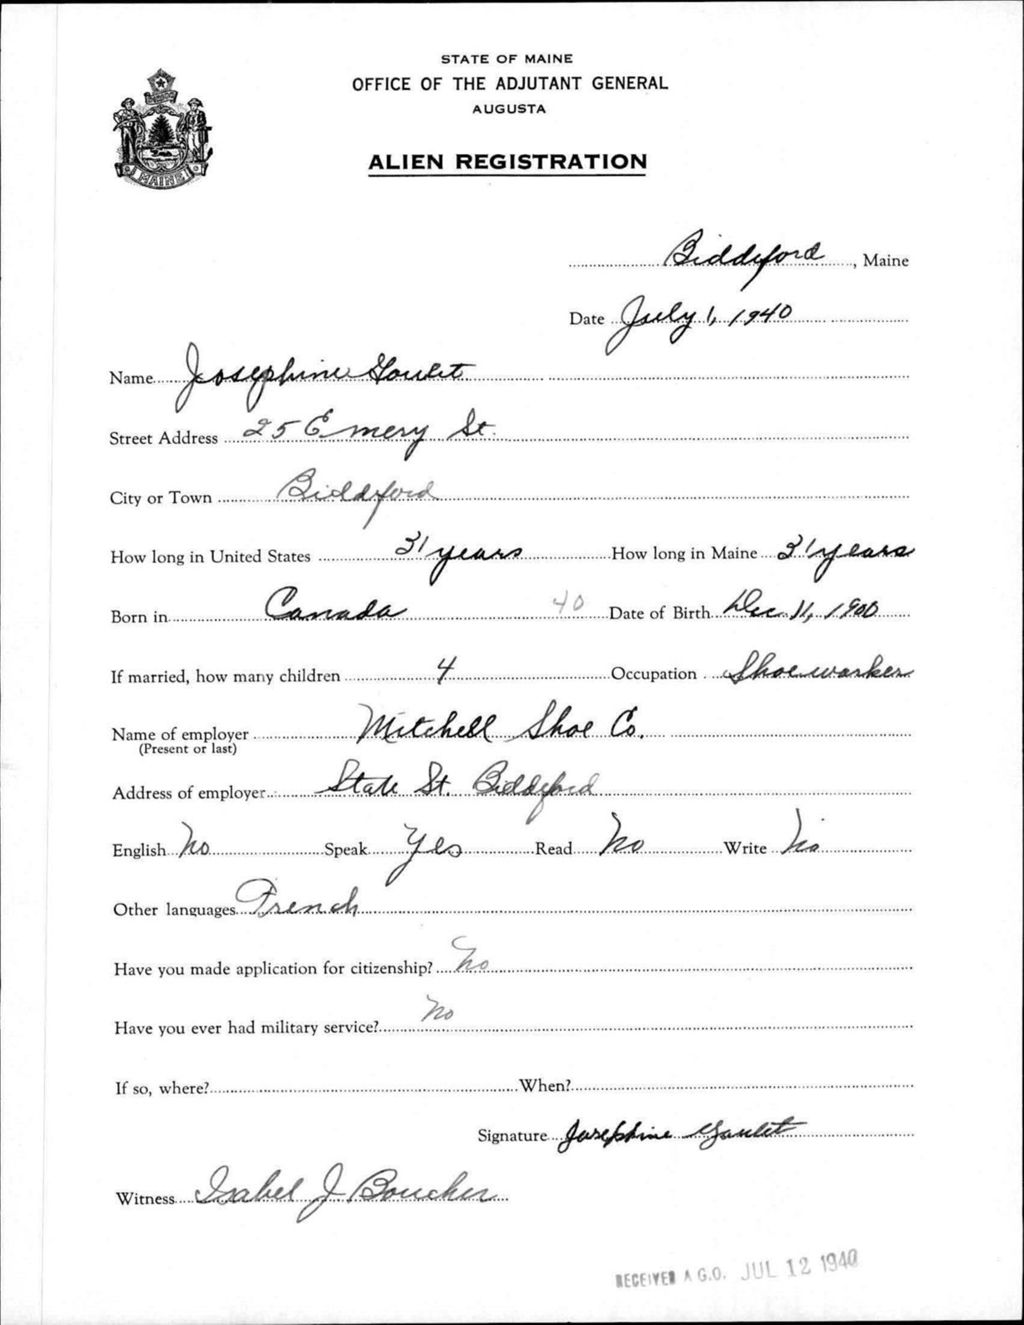 STATE OF MAINE
OFFICE OF THE ADJUTANT GENERAL
AUGUSTA
MAINE
ALIEN REGISTRATION
Biddeford, Maine
Date July 1, 1940
Name Josephine Goulet
Street Address 25 Emery St.
City or Town Biddeford
How long in United States 31 years How long in Maine 31 years
Born in Canada 40 Date of Birth Dec 11, 1900
If married, how many children 4 Occupation Shoeworker
Name of employer Mitchell Shoe Co.
(Present or last)
Address of employer State St. Biddeford
English No Speak Yes Read No Write No
Other languages French
Have you made application for citizenship? No
Have you ever had military service? No
If so, where? When?
Signature Josephine Goulet
Witness Isabel J Boucher
RECEIVED A.G.O. JUL 12 1940